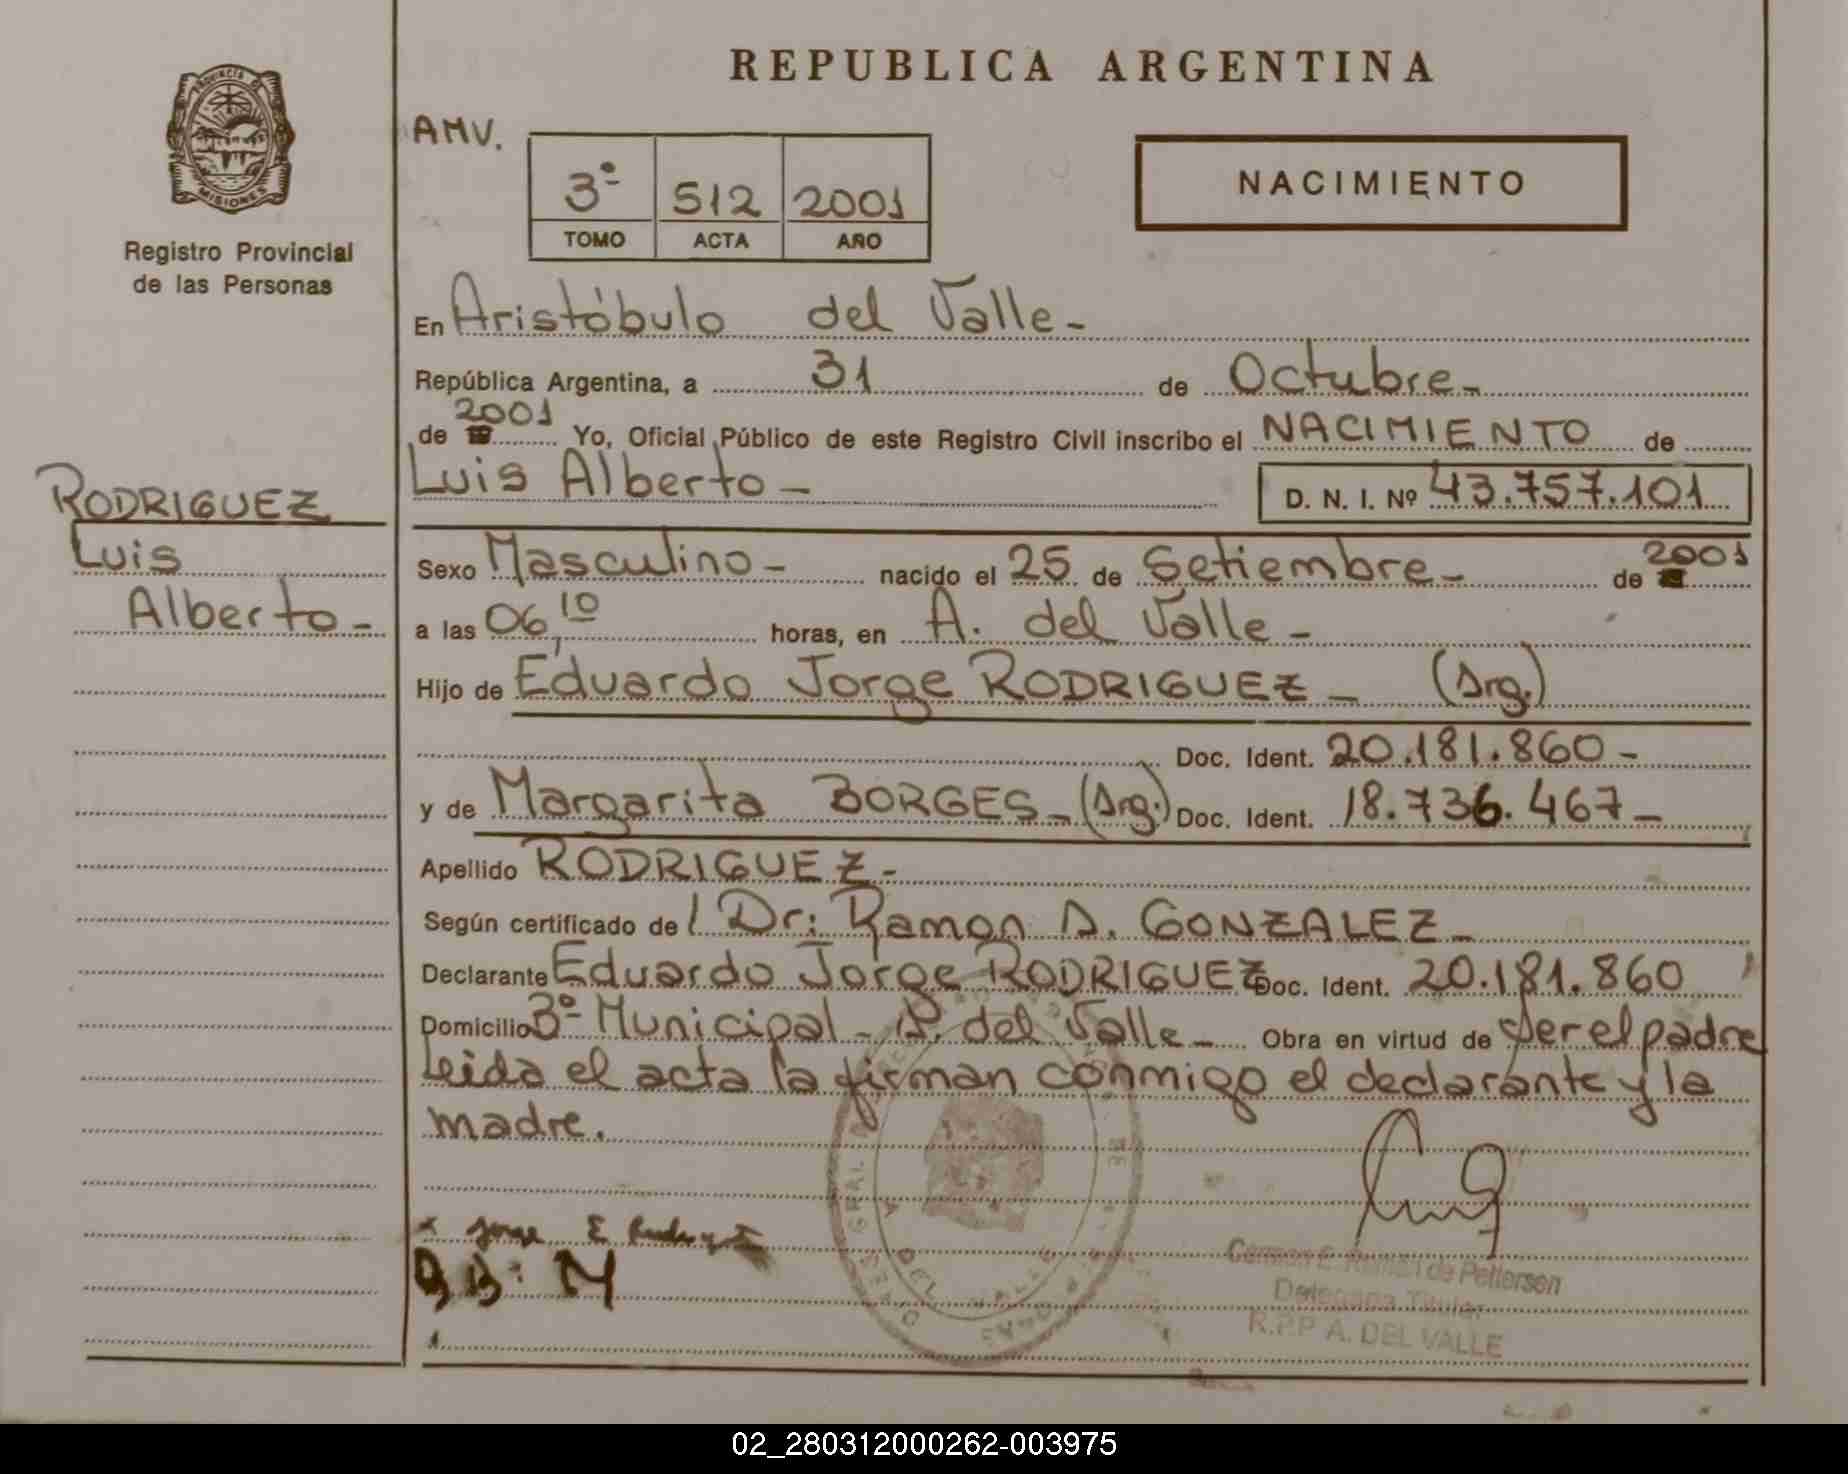 REPUBLICA ARGENTINA
PROVINCIA DE
MISIONES
Registro Provincial
de las Personas
AMV.
3º 512 2001
TOMO ACTA AÑO
NACIMIENTO
En Aristóbulo del Valle-
República Argentina, a 31 de Octubre-
2001
de Yo, Oficial Público de este Registro Civil inscribo el NACIMIENTO de
Luis Alberto- D. N. I. Nº 43.757.101
RODRIGUEZ
Luis
Alberto-
Sexo Masculino- nacido el 25 de Setiembre- de 2001
a las 06,10 horas, en A. del Valle-
Hijo de Eduardo Jorge RODRIGUEZ- (Arg.)
Doc. Ident. 20.181.860-
y de Margarita BORGES-(Arg.) Doc. Ident. 18.736.467-
Apellido RODRIGUEZ-
Según certificado de Dr: Ramon A. GONZALEZ-
Declarante Eduardo Jorge RODRIGUEZ Doc. Ident. 20.181.860
Domicilio 3º Municipal- A. del Valle- Obra en virtud de ser el padre
Leida el acta la firman conmigo el declarante y la
madre.
Jorge E
DEL VALLE
de Pettersen
Delegada Titular
R.P.P A. DEL VALLE
02_280312000262-003975